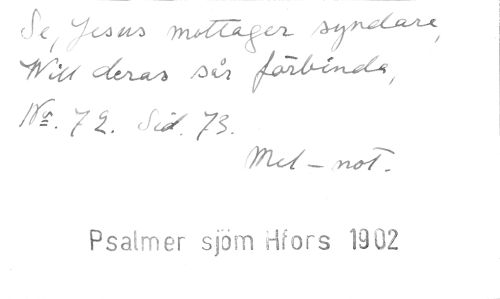 Se, Jesus mottager syndare,
Will deras sår förbinda,
No. 72. Sid. 73.
Mel-not.
Psalmer sjöm Hfors 1902